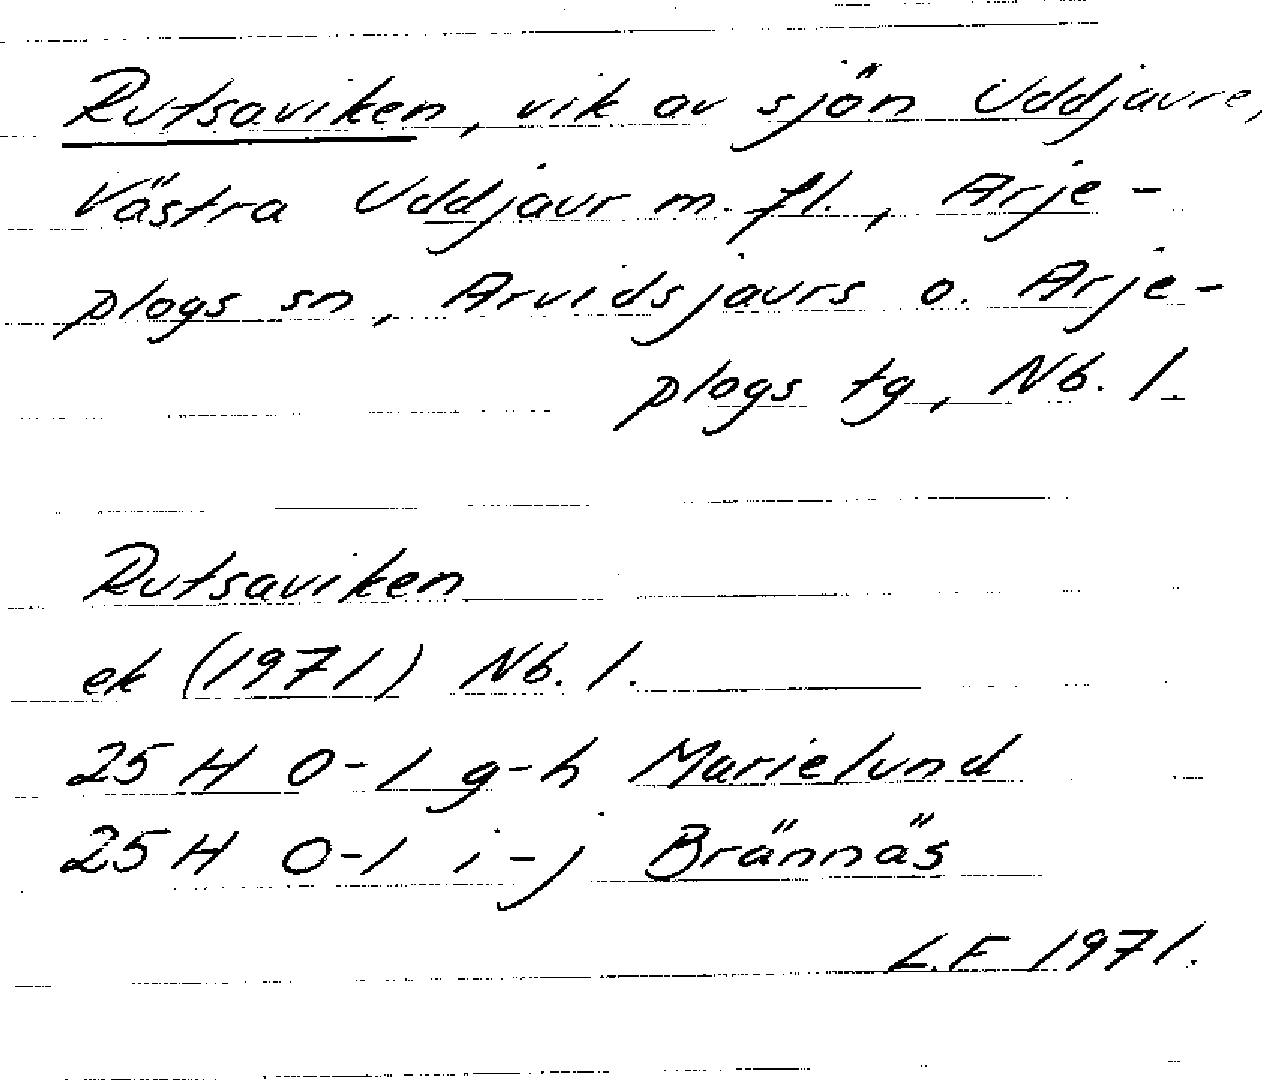 Rutsaviken, vik av sjön Uddjaure,
Västra Uddjaur m. fl., Arje-
plogs sn, Arvidsjaurs o. Arje-
plogs tg, Nb. l.
Rutsaviken
ek (1971) Nb. l.
25 H 0-1 g-h Marielund
25 H 0-1 i-j Brännäs
L.F 1971.